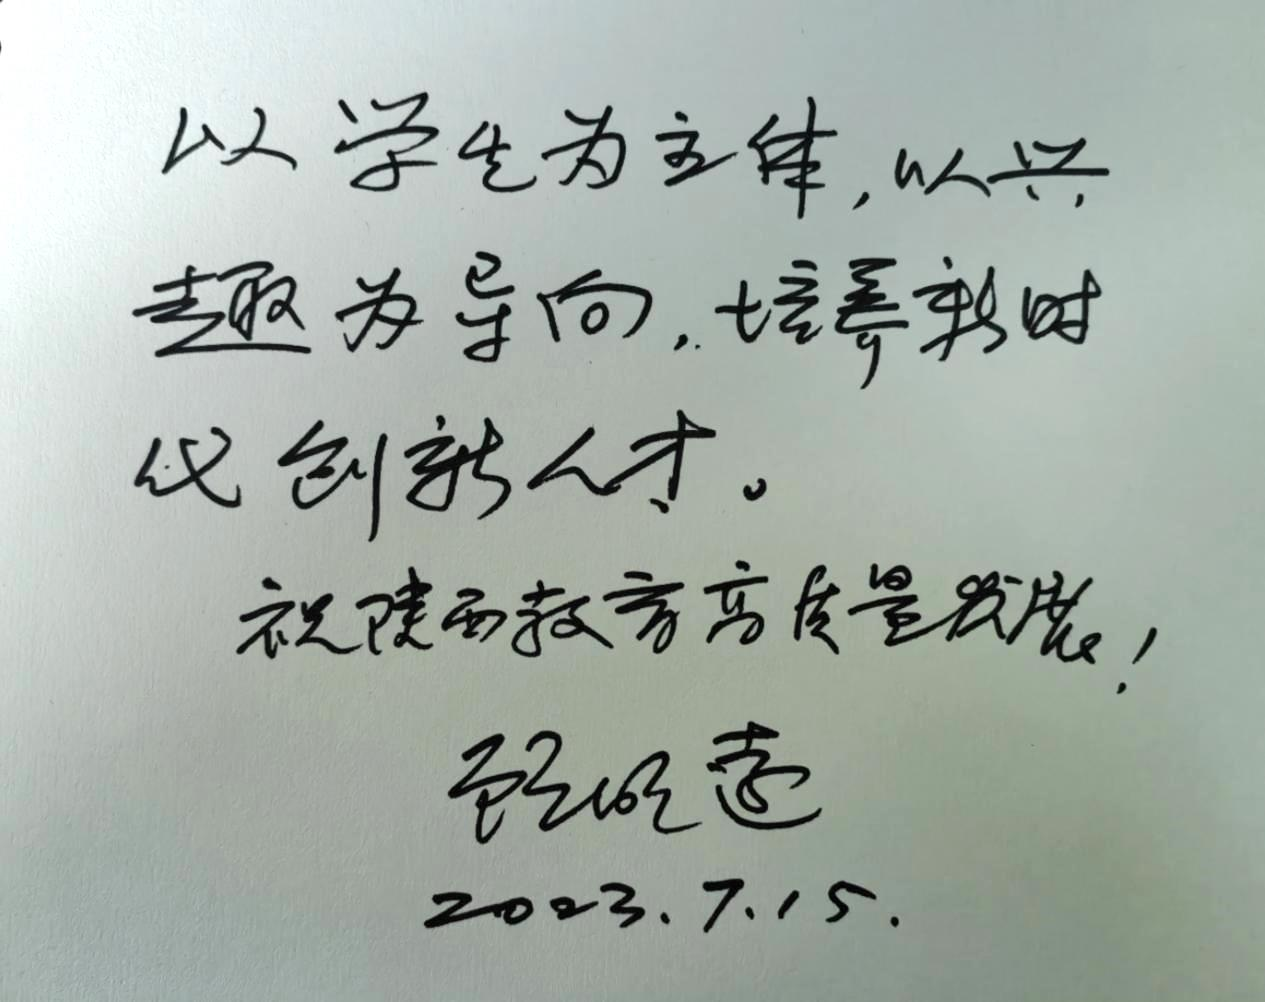 以学生为主体，以兴
趣为导向，培养新时
代创新人才。
祝陕西教育高质量发展！
顾明远
2023.7.15.